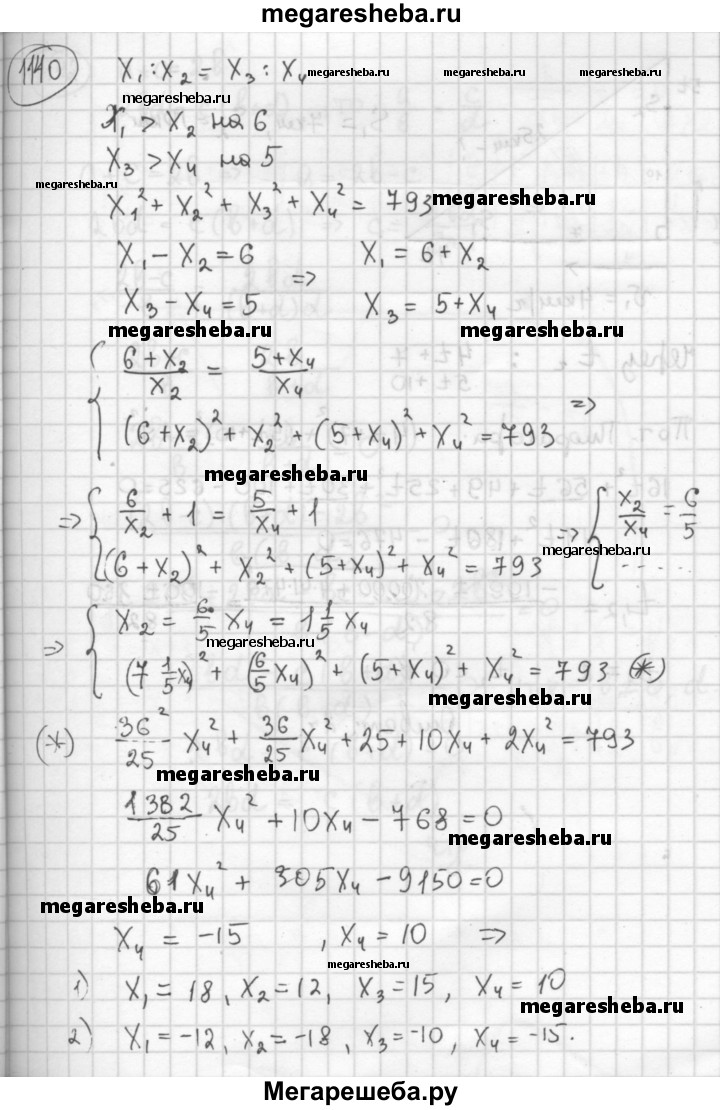 megaresheba.ru
1140
X₁ : X₂ = X₃ : X₄ megaresheba.ru megaresheba.ru
megaresheba.ru
X₁ > X₂ на 6
X₃ > X₄ на 5
megaresheba.ru
X₁² + X₂² + X₃² + X₄² = 793 megaresheba.ru
X₁ - X₂ = 6 X₁ = 6 + X₂
=>
X₃ - X₄ = 5 X₃ = 5 + X₄
megaresheba.ru megaresheba.ru
{ (6 + X₂)/X₂ = (5 + X₄)/X₄
(6 + X₂)² + X₂² + (5 + X₄)² + X₄² = 793 =>
megaresheba.ru
=> { 6/X₂ + 1 = 5/X₄ + 1 => { X₂/X₄ = 6/5
megaresheba.ru
(6 + X₂)² + X₂² + (5 + X₄)² + X₄² = 793 ......
=> { X₂ = 6/5 X₄ = 1 1/5 X₄
megaresheba.ru
(7 1/5 X₄)² + (6/5 X₄)² + (5 + X₄)² + X₄² = 793 (*)
megaresheba.ru
(*) 36²/25 - X₄² + 36/25 X₄² + 25 + 10X₄ + 2X₄² = 793
megaresheba.ru
1382/25 X₄² + 10X₄ - 768 = 0
megaresheba.ru
61X₄² + 305X₄ - 9150 = 0
megaresheba.ru
X₄ = -15 , X₄ = 10 =>
megaresheba.ru
1) X₁ = 18, X₂ = 12, X₃ = 15, X₄ = 10
megaresheba.ru
2) X₁ = -12, X₂ = -18, X₃ = -10, X₄ = -15.
Мегарешеба.ру